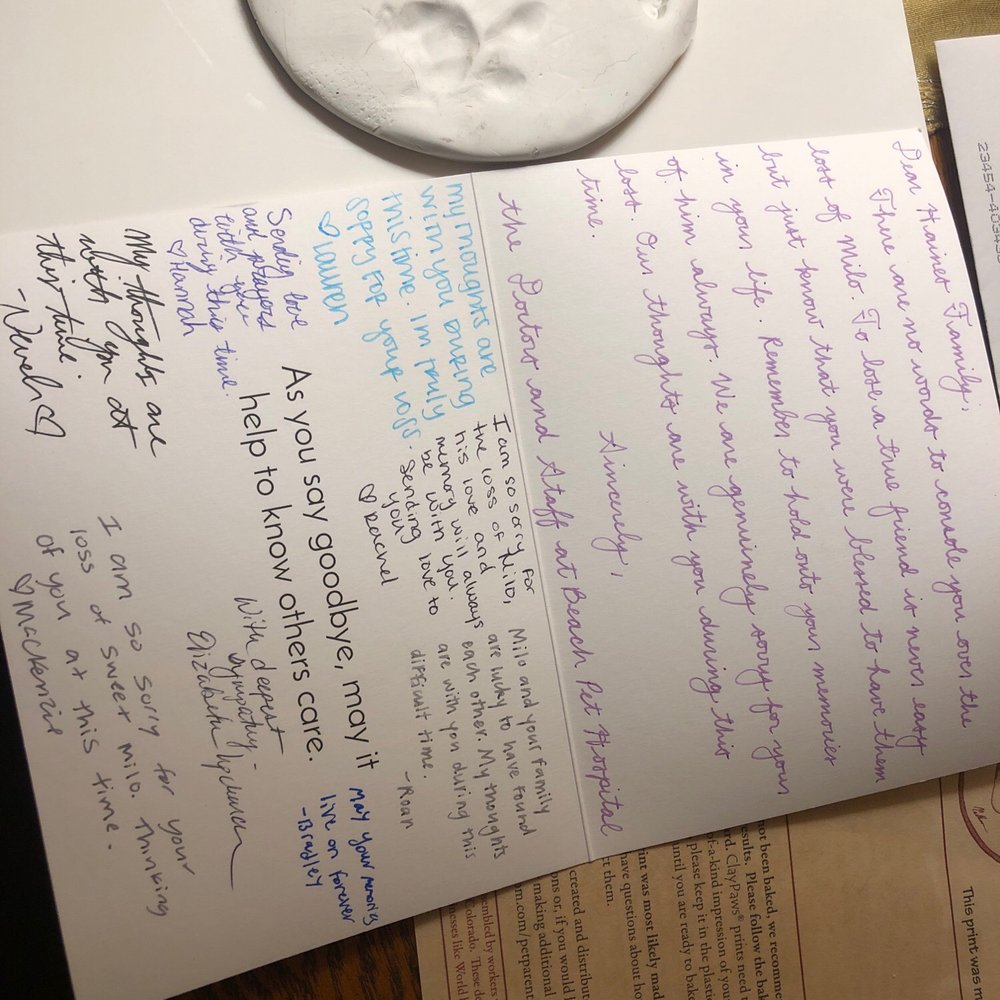 Dear Haines Family,
There are no words to console you over the
loss of Milo. To lose a true friend is never easy
but just know that you were blessed to have them
in your life. Remember to hold onto your memories
of him always. We are genuinely sorry for your
loss. Our thoughts are with you during this
time.
Sincerely,
the Doctors and Staff at Beach Pet Hospital
my thoughts are
with you during
this time. Im truly
soppy for your loss.
♡Lauren
I am so sorry for
the loss of Milo,
his love and
memory will always
be with you.
Sending love to
you
♡Rachel
Milo and your family
are lucky to have found
each other. My thoughts
are with you during this
difficult time.
-Roan
Sending love
and prayers
with you
during this time.
♡Hannah
As you say goodbye, may it
help to know others care.
May your memory
live on forever
-Bradley
My thoughts are
with you at
this time.
With deepest
sympathy-
Elizabeth
I am so sorry for your
loss of sweet Milo. Thinking
of you at this time.
♡Mackenzie
23454-403
This print was m
not been baked, we recomme
results. Please follow the bak
rd. ClayPaws® prints need t
of-a-kind impression of your
please keep it in the plastic
until you are ready to bake
int was most likely mad
have questions about ho
ct them.
created and distribut
ons or, if you would l
making additional
m.com/petparent
sembled by workers
Colorado. These de
nesses like World